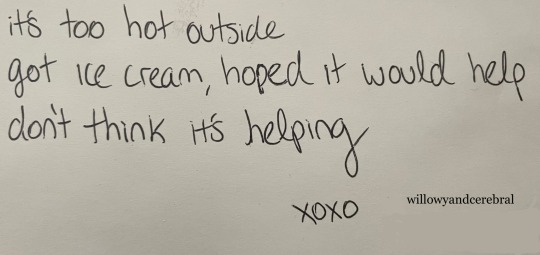 it's too hot outside
got ice cream, hoped it would help
don't think it's helping
xoxo
willowyandcerebral